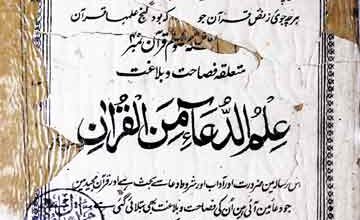 ہرچہ جوئی ز نص قرآن جو که بود گنج علمها قرآن
علوم قرآن نمبر ۴۸
متعلقہ فصاحت و بلاغت
عِلْمُ الدُّعَاءِ مِنَ الْقُرْآنِ
اس رسالہ میں ضرورت اور آداب اور شروط دعا سے بحث ہے اور قرآن مجید میں
جو دعائیں آئی ہیں اُن کی فصاحت و بلاغت بھی بتلائی گئی ہے